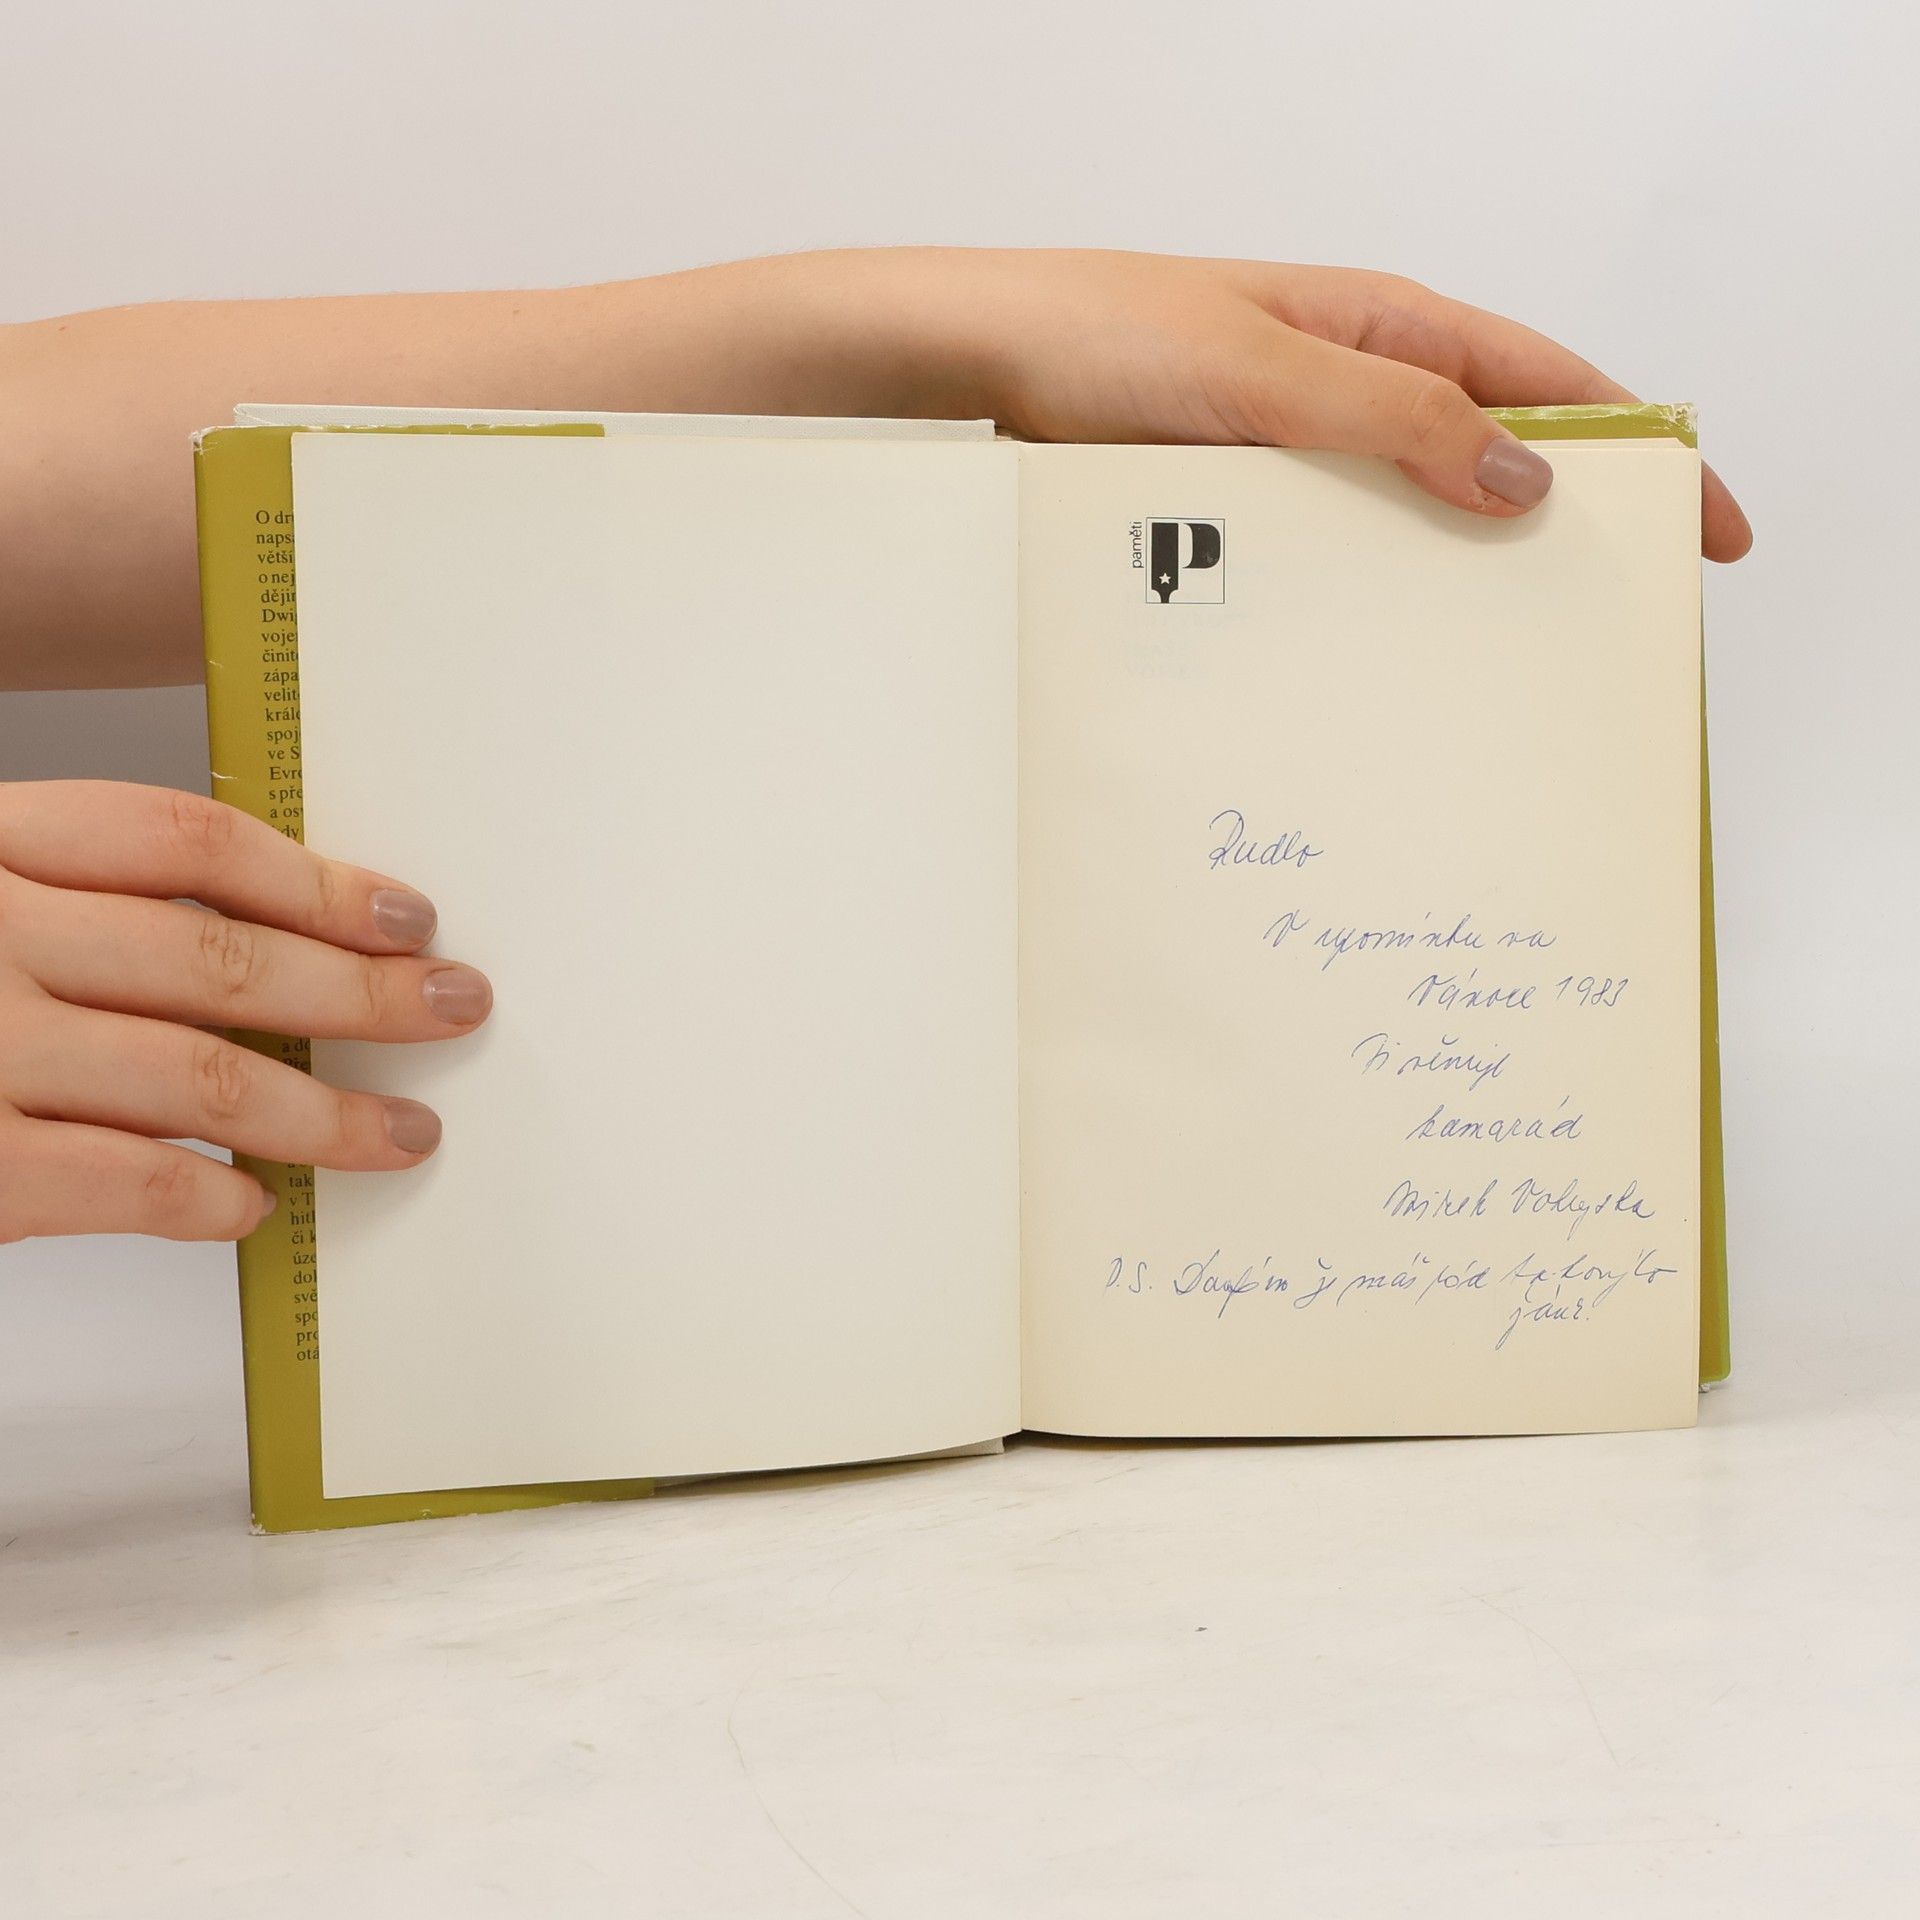 O dr
naps
větší
o nej
dějin
Dwig
voje
činit
zápa
velit
král
spoj
ve S
Evro
s pře
a os
dy
a do
Pře
tak
v T
hitl
či k
úze
dok
svě
spo
pro
otá
paměti
P
Rudlo
V upomínku na
Vánoce 1983
Ti věnuje
kamarád
Mirek
P.S. Doufám že máš rád takovýto
žánr.